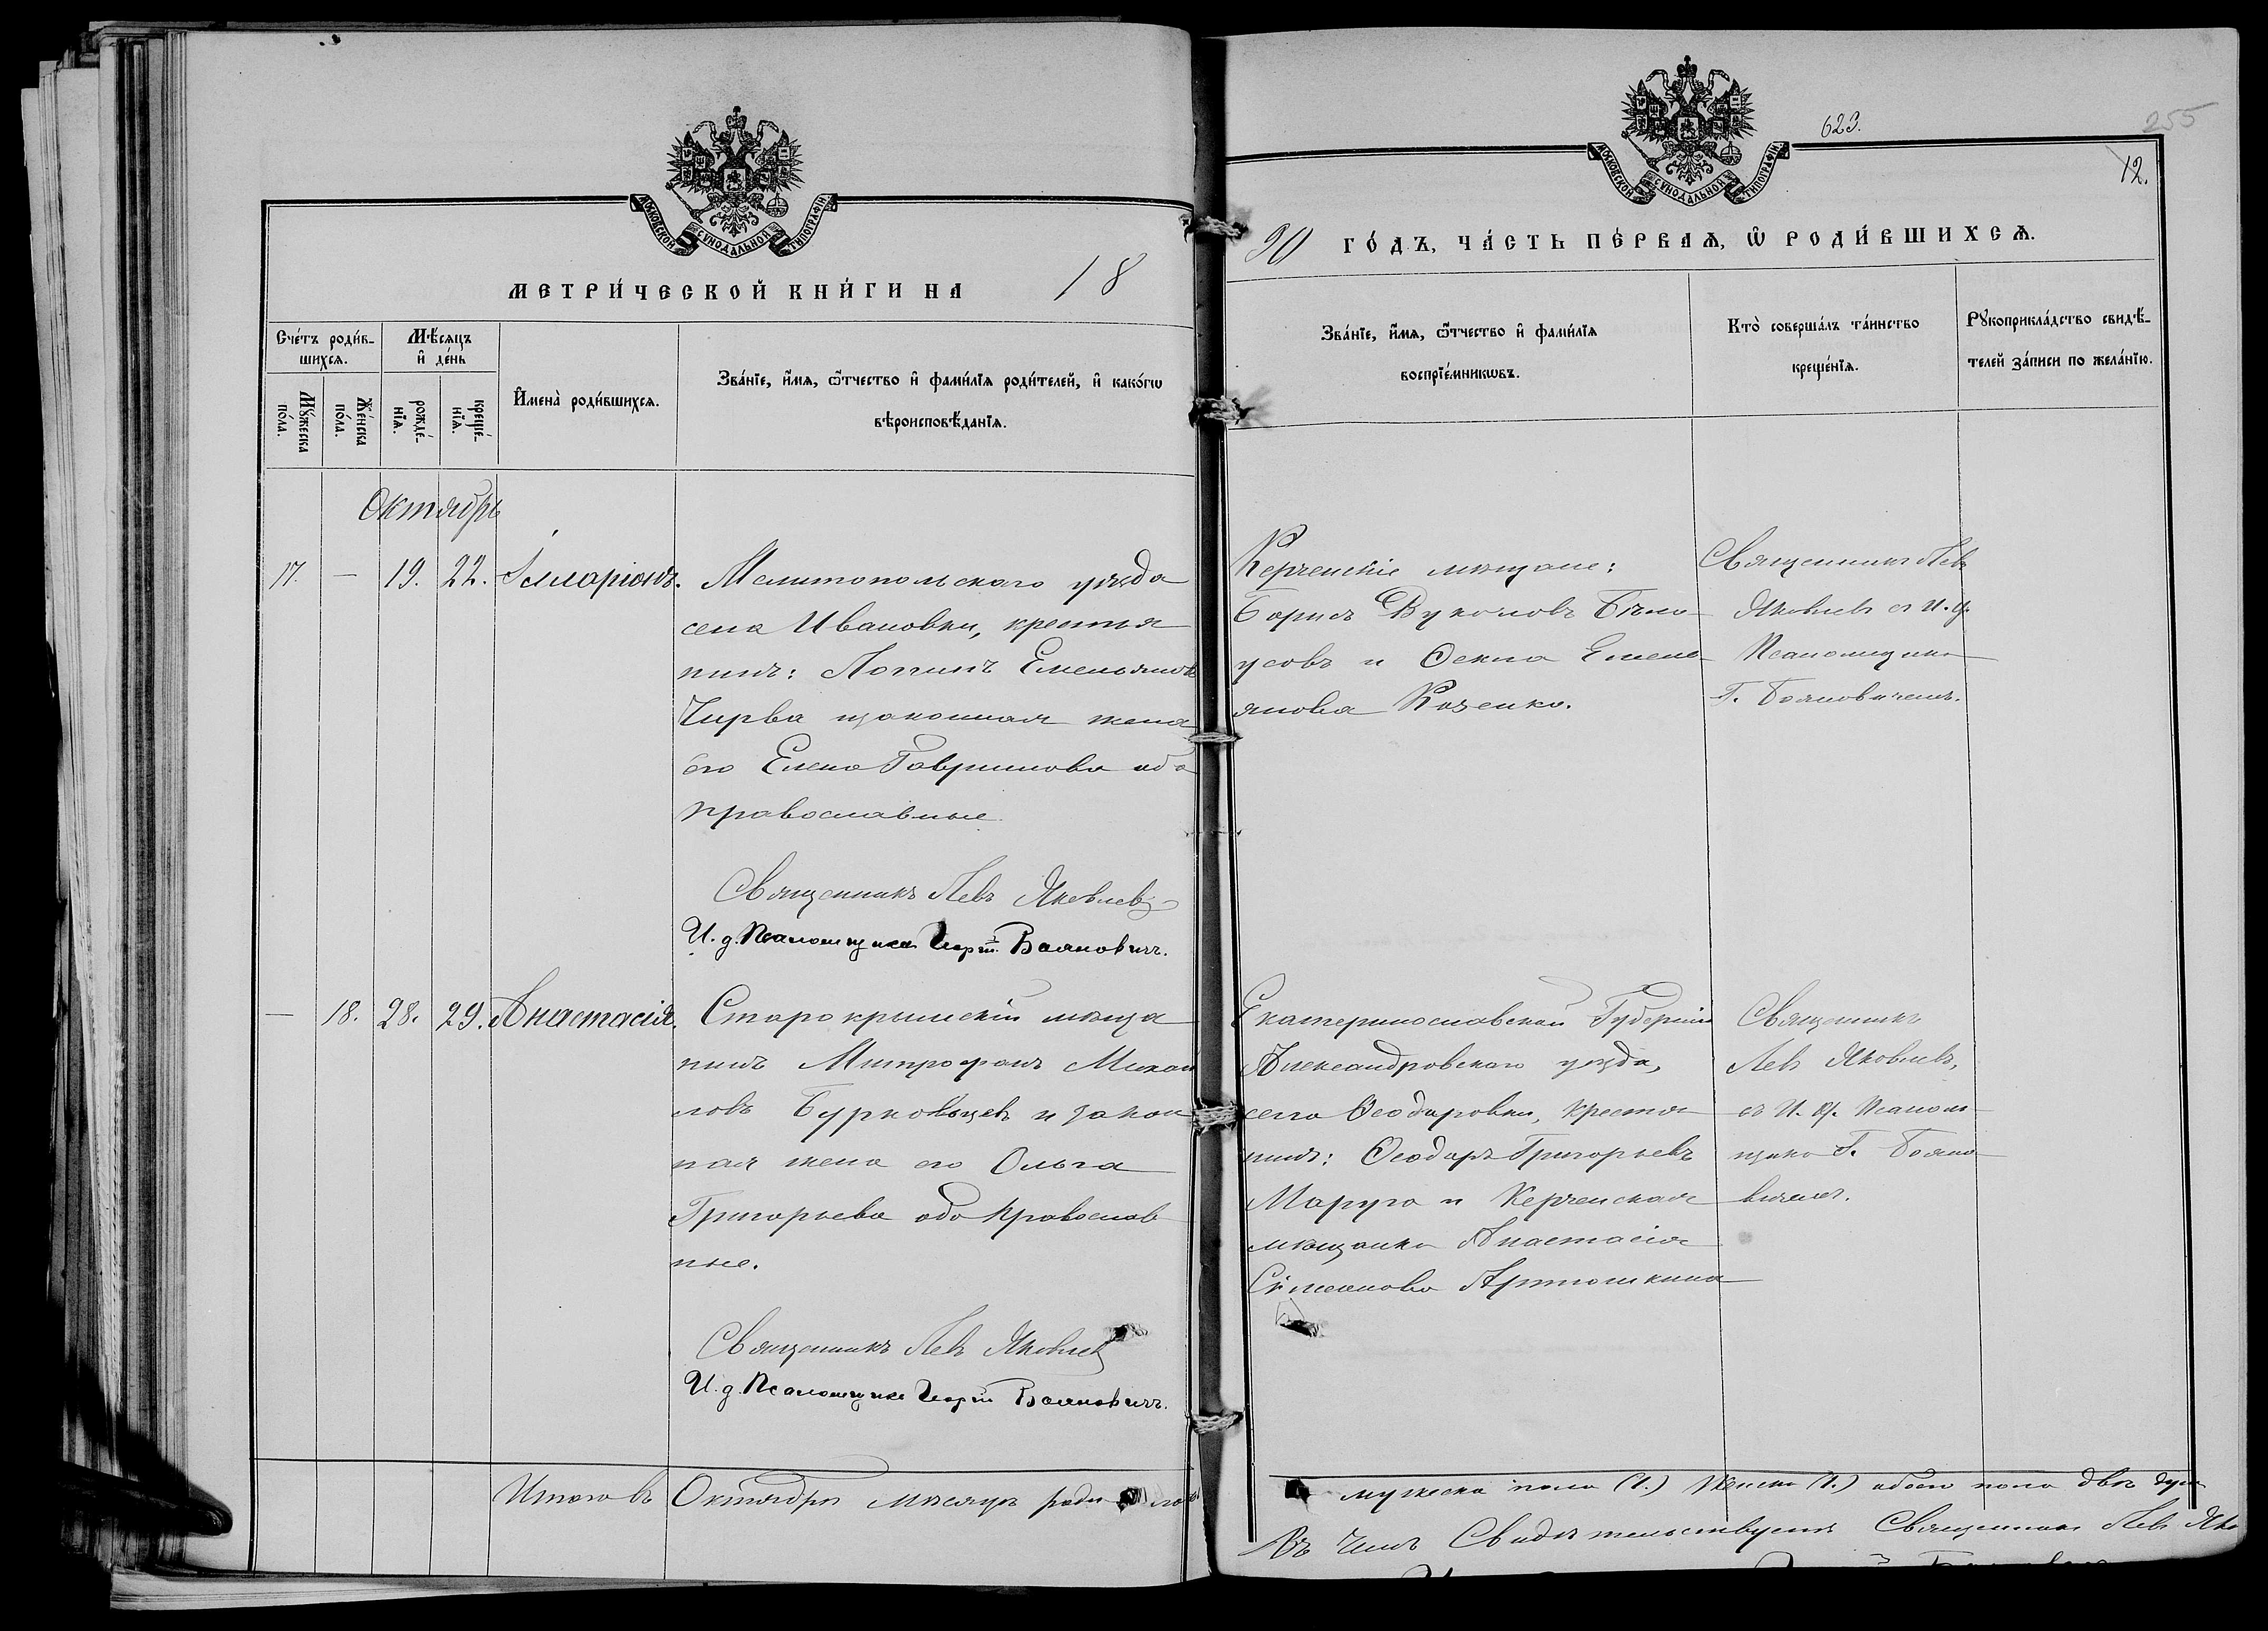 МОСКОВСКОЙ СѴНОДАЛЬНОЙ ТИПОГРАФІИ
МЕТРИ́ЧЕСКОЙ КНИ́ГИ НА 18
Сче́тъ роди́в-
шихсѧ.
Мѣ́сѧцъ
и҆ де́нь
Мꙋ́жеска
по́ла.
Же́нска
по́ла.
рожде́-
нїѧ.
креще́-
нїѧ.
И҆мена̀ роди́вшихсѧ.
Зва́нїе, и҆́мѧ, ѻ҆́тчество и҆ фами́лїѧ роди́телей, и҆ како́гѡ
вѣроисповѣ́данїѧ.
Октябрь
17. — 19. 22. Илларіонъ.
Мелитопольскаго уѣзда
села Ивановки, крестья
нинъ: Логинъ Емельяновъ
Чирва изаконная жена
его Елена Гаврилова оба
православные
Священникъ Левъ Яковлевъ
И. д. Псаломщика Георгій Бояновичъ.
— 18. 28. 29. Анастасія.
Старокрымскій мѣща
нинъ Митрофанъ Михаи
ловъ Бурковцевъ и закон
ная жена его Ольга
Григорьева оба православ
ные.
Священникъ Левъ Яковлевъ
И. д. Псаломщика Георгій Бояновичъ.
Итого въ Октябрѣ мѣсяцѣ
623.
255
12.
МОСКОВСКОЙ СѴНОДАЛЬНОЙ ТИПОГРАФІИ
90 ГО́ДЪ, ЧА́СТЬ ПЕ́РВАѦ, Ѡ҆ РОДИ́ВШИХСѦ.
Зва́нїе, и҆́мѧ, ѻ҆́тчество и҆ фами́лїѧ
воспрїе́мникѡвъ.
Кто̀ соверша́лъ та́инство
креще́нїѧ.
Рꙋкоприкла́дство свидѣ́-
телей за́писи по жела́нїю.
Керченскіе мѣщане:
Борисъ Вуколовъ Бѣло
усовъ и Ѳекла Емель
янова Козенко.
Священникъ Левъ
Яковлевъ съ И. д.
Псаломщика
Г. Бояновичемъ.
Екатеринославской Губерніи
Александровскаго уѣзда,
села Ѳеодоровки, крестья
нинъ: Ѳеодоръ Григорьевъ
Маруга и Керченская
мѣщанка Анастасія
Симеонова Артюшкина
Священникъ
Левъ Яковлевъ,
съ И. д. Псалом
щика Г. Бояно
вичемъ.
мужеска пола (1.) женска (1.) обоего пола двѣ душ
Въ чемъ Свидѣтельствуетъ Священникъ Левъ Яко